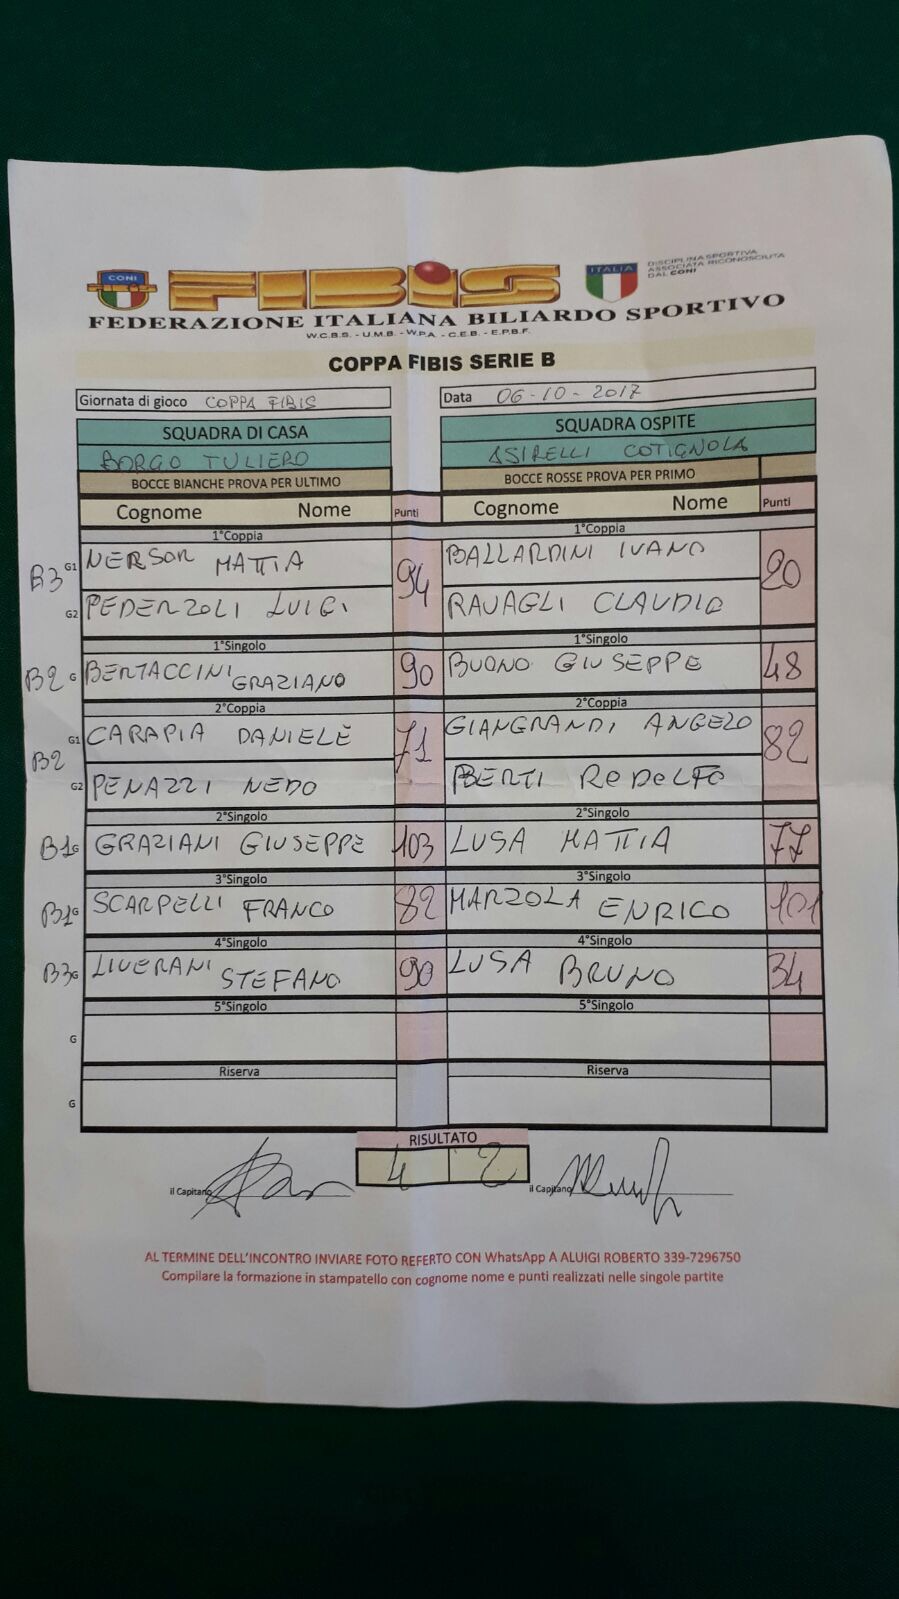 CONI
FIBiS
ITALIA
DISCIPLINA SPORTIVA
ASSOCIATA RICONOSCIUTA
DAL CONI
FEDERAZIONE ITALIANA BILIARDO SPORTIVO
W.C.B.S. - U.M.B. - W.P.A. - C.E.B. - E.P.B.F.
COPPA FIBIS SERIE B
Giornata di gioco COPPA FIBIS Data 06-10-2017
SQUADRA DI CASA SQUADRA OSPITE
BORGO TULIERO ASIRELLI COTIGNOLA
BOCCE BIANCHE PROVA PER ULTIMO BOCCE ROSSE PROVA PER PRIMO
Cognome Nome Punti Cognome Nome Punti
1°Coppia 1°Coppia
B3 G1 NERSOR MATTIA 94 BALLARDINI IVANO 20
G2 PEDERZOLI LUIGI RAVAGLI CLAUDIO
1°Singolo 1°Singolo
B2 G BERTACCINI GRAZIANO 90 BUONO GIUSEPPE 48
2°Coppia 2°Coppia
B2 G1 CARAPIA DANIELE 71 GIANGRANDI ANGELO 82
G2 PENAZZI NEDO BERTI REDELFO
2°Singolo 2°Singolo
B1 G GRAZIANI GIUSEPPE 103 LUSA MATTIA 77
3°Singolo 3°Singolo
B1 G SCARPELLI FRANCO 82 MARZOLA ENRICO 101
4°Singolo 4°Singolo
B3 G LIVERANI STEFANO 90 LUSA BRUNO 34
5°Singolo 5°Singolo
G
Riserva Riserva
G
RISULTATO
4 2
il Capitano il Capitano
AL TERMINE DELL'INCONTRO INVIARE FOTO REFERTO CON WhatsApp A ALUIGI ROBERTO 339-7296750
Compilare la formazione in stampatello con cognome nome e punti realizzati nelle singole partite